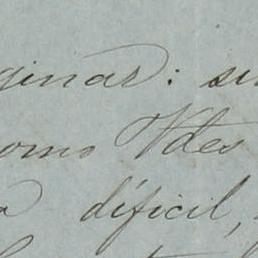 ginar: su
omo Vdes
a difícil,